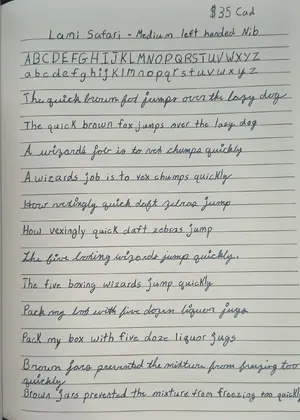 $35 Cad
Lami Safari - Medium left handed Nib
ABCDEFGHIJKLMNOPQRSTUVWXYZ
abcdefghijklmnopqrstuvwxyz
The quick brown fox jumps over the lazy dog
The quick brown fox jumps over the lazy dog
A wizards job is to vex chumps quickly
A wizards job is to vex chumps quickly
How vexingly quick daft zebras jump
How vexingly quick daft zebras jump
The five boxing wizards jump quickly.
The five boxing wizards jump quickly
Pack my box with five dozen liquor jugs
Pack my box with five doze liquor jugs
Brown jars prevented the mixture from freezing too
quickly
Brown jars prevented the mixture from freezing too quickly